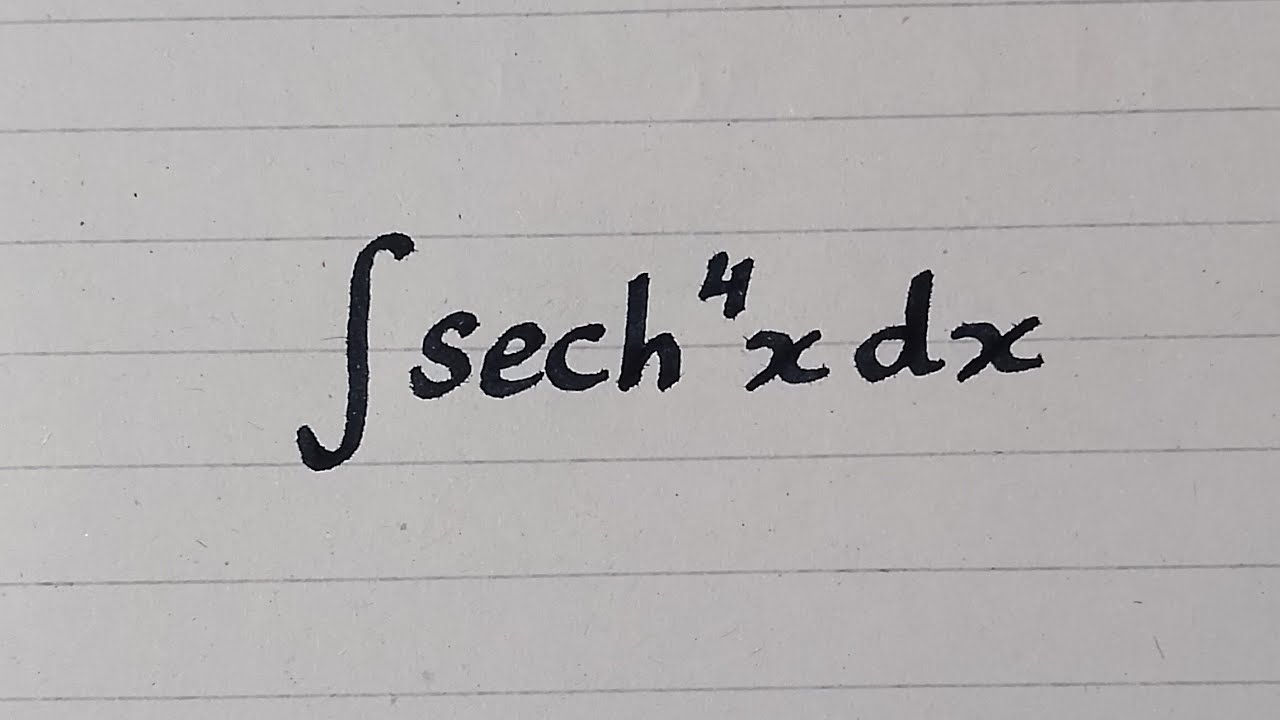 ∫ sech⁴x dx